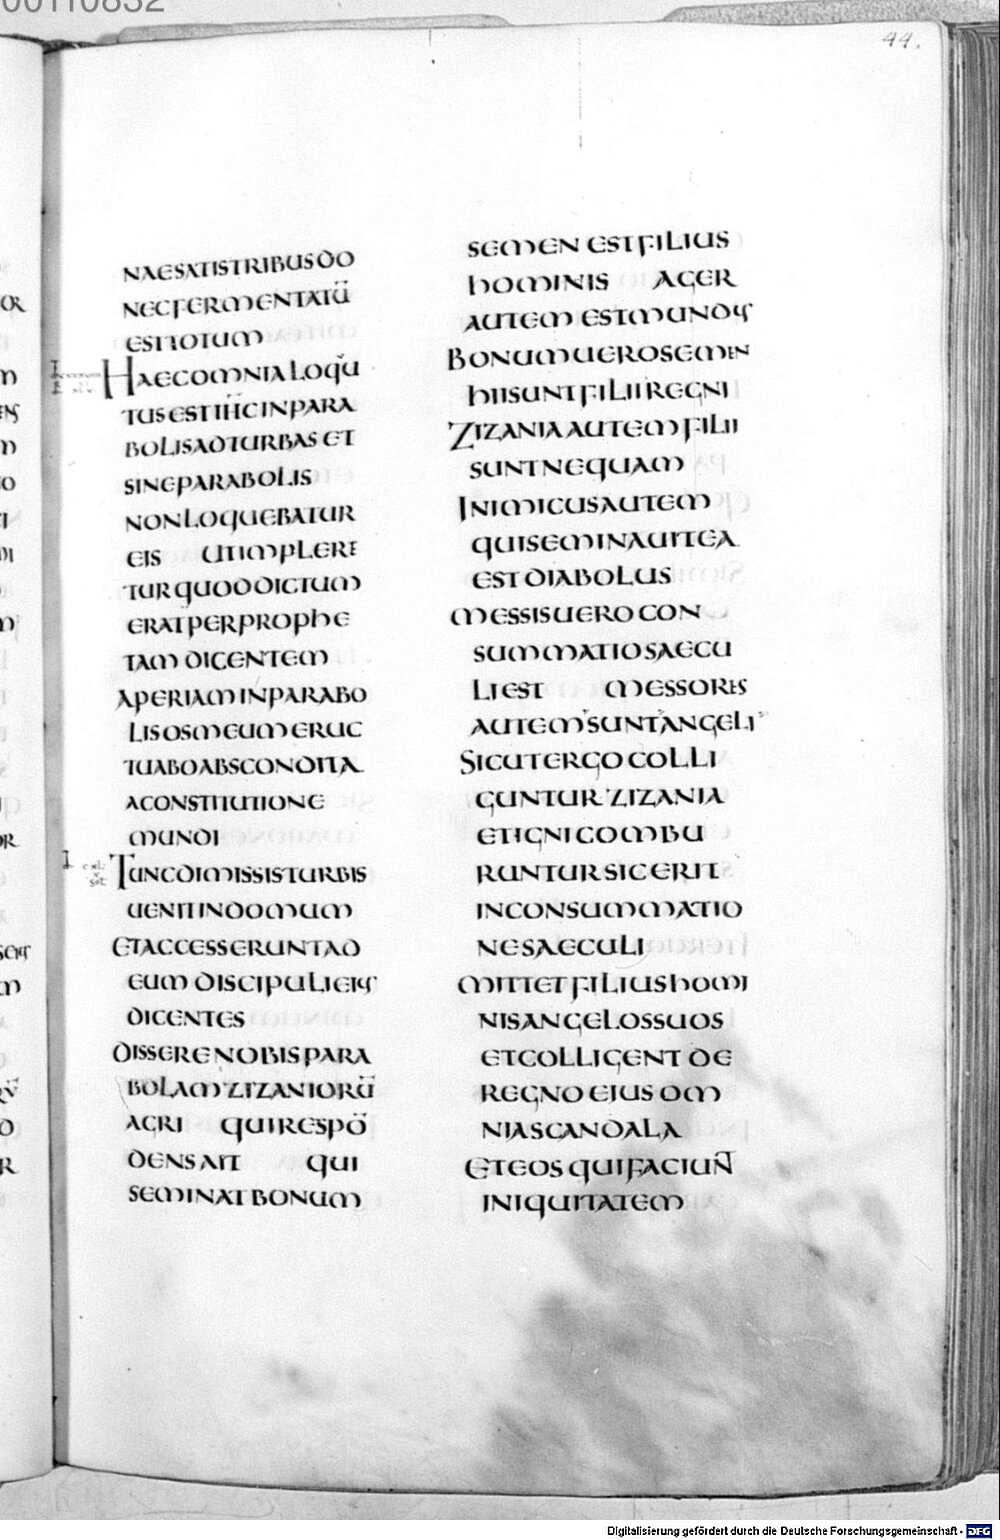 44.
NAESATISTRIBUSDO
NECFERMENTATŪ
ESTTOTUM
HAECOMNIALOQU
TUSESTIHCINPARA
BOLISADTURBASET
SINEPARABOLIS
NONLOQUEBATUR
EIS UTIMPLERE
TURQUODDICTUM
ERATPERPROPHE
TAMDICENTEM
APERIAMINPARABO
LISOSMEUMERUC
TUABOABSCONDITA
ACONSTITUTIONE
MUNDI
TUNCDIMISSISTURBIS
UENITINDOMUM
ETACCESSERUNTAD
EUMDISCIPULIEIUS
DICENTES
DISSERENOBISPARA
BOLAMZIZANIORŪ
AGRI QUIRESPŌ
DENSAIT QUI
SEMINATBONUM
SEMENESTFILIUS
HOMINIS AGER
AUTEMESTMUNDUS
BONUMUEROSEMEN
HIISUNTFILIIREGNI
ZIZANIAAUTEMFILII
SUNTNEQUAM
INIMICUSAUTEM
QUISEMINAUITEA
ESTDIABOLUS
MESSISUEROCON
SUMMATIOSAECU
LIEST MESSORES
AUTEMSUNTANGELI
SICUTERGOCOLLI
GUNTURZIZANIA
ETIGNICOMBU
RUNTURSICERIT
INCONSUMMATIO
NESAECULI
MITTETFILIUSHOMI
NISANGELOSSUOS
ETCOLLIGENTDE
REGNOEIUSOM
NIASCANDALA
ETEOSQUIFACIUNT
INIQUITATEM
Digitalisierung gefördert durch die Deutsche Forschungsgemeinschaft - DFG